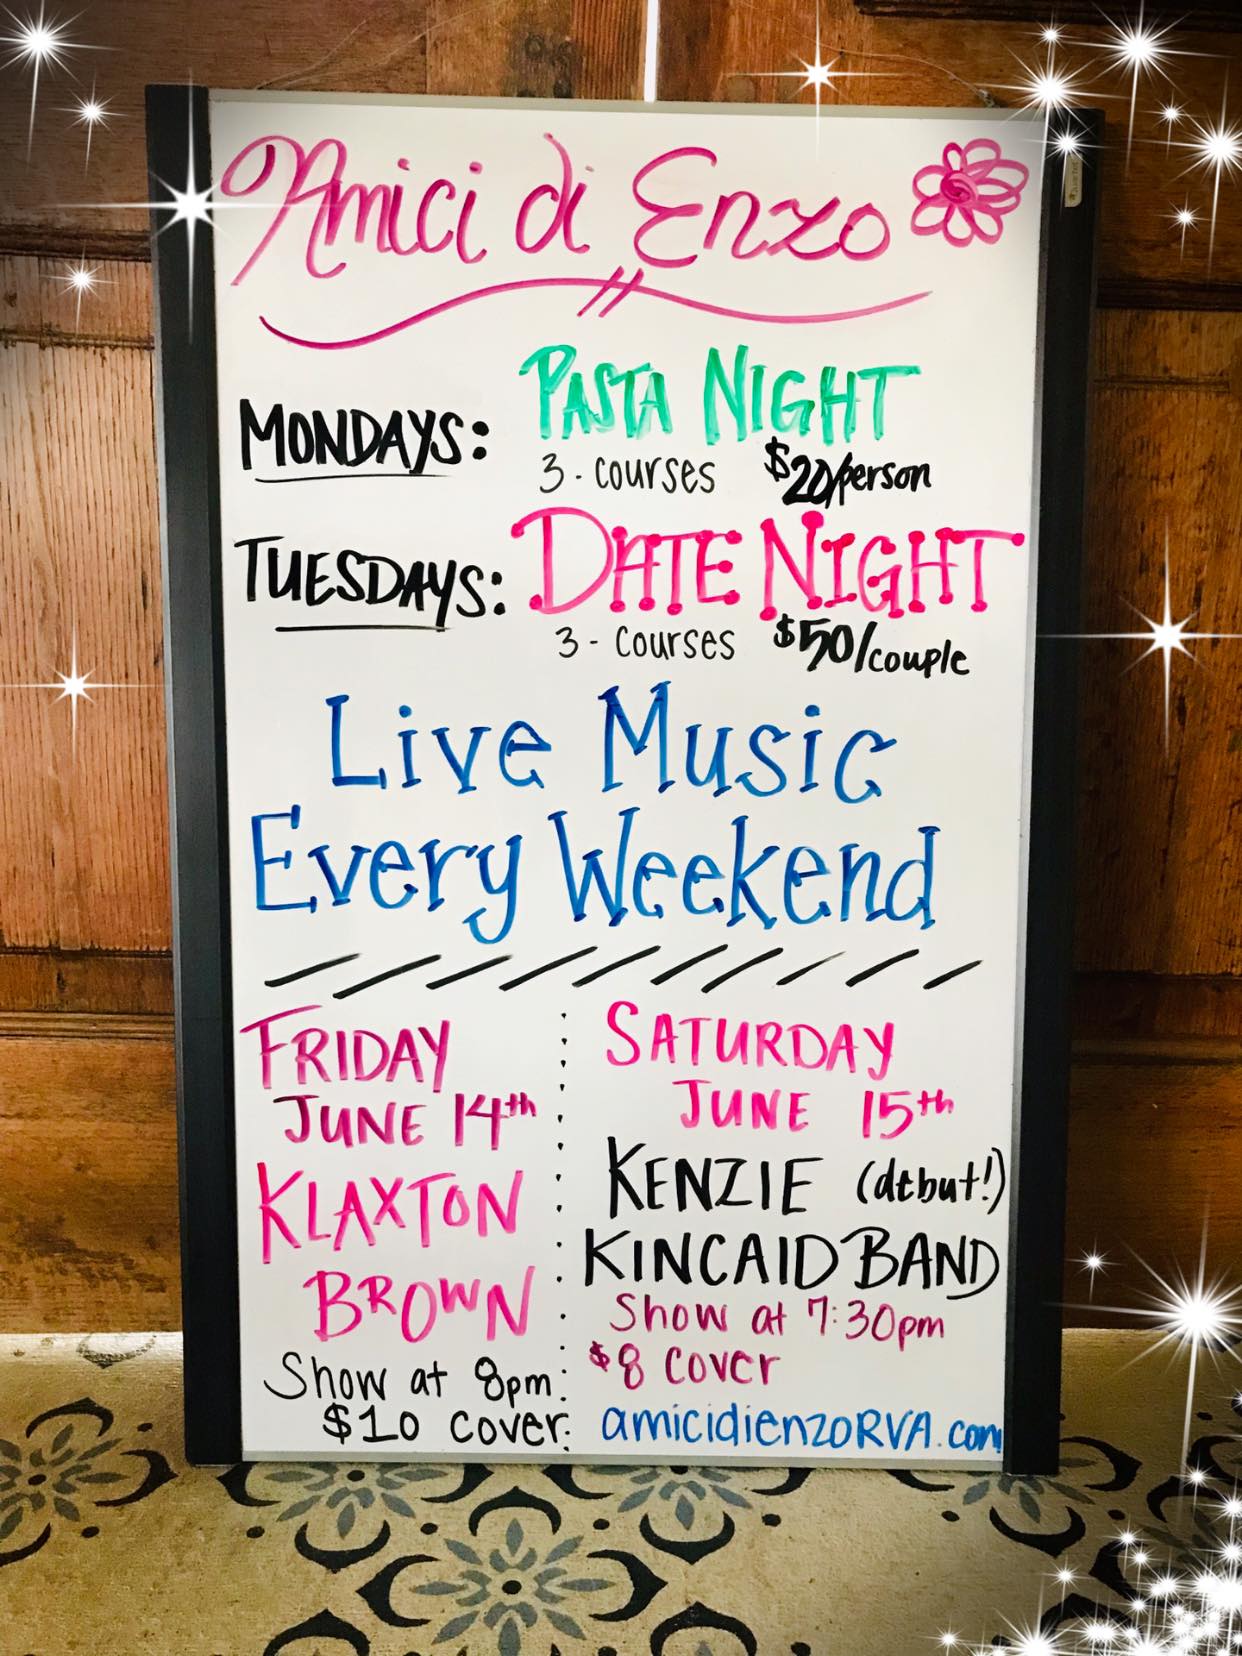 Amici di Enzo
MONDAYS: PASTA NIGHT
3 - courses $20/person
TUESDAYS: DATE NIGHT
3 - courses $50/couple
Live Music
Every Weekend
FRIDAY
JUNE 14th
KLAXTON
BROWN
Show at 8pm
$10 cover
SATURDAY
JUNE 15th
KENZIE (debut!)
KINCAID BAND
Show at 7:30pm
$8 cover
amicidienzoRVA.com